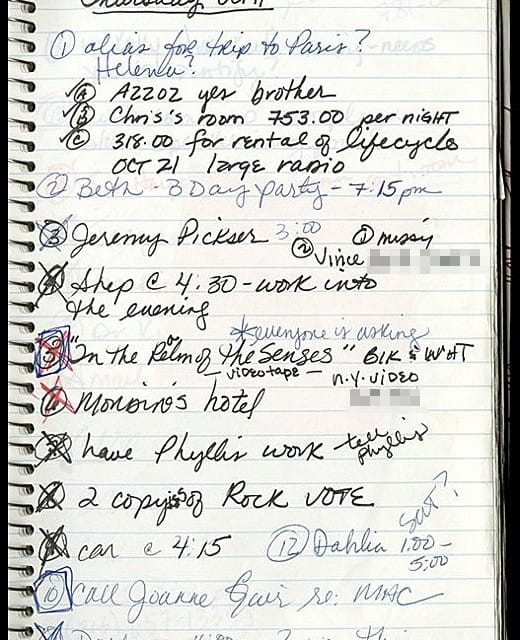 Thursday
① alias for trip to Paris?
Helena?
✓Ⓐ AZZOZ yes brother
✓Ⓑ Chris's room 753.00 per night
✓Ⓒ 318.00 for rental of lifecycle
OCT 21 large radio
② Beth - 3 Day party - 7:15 pm
③ Jeremy Pickser 3:00 ① missy
② Vince
④ Shep @ 4:30 - work into
the evening
*everyone is asking
⑤ "In the Relm of the Senses" Blk & Wht
- videotape - n.y. video
⑥ Mondino's hotel
⑦ have Phyllis work - tell
phyllis
⑧ 2 copys of ROCK VOTE
Sat?
⑨ car @ 4:15 ⑫ Dahlia 1:00-
5:00
⑩ Call Joanne re: MAC